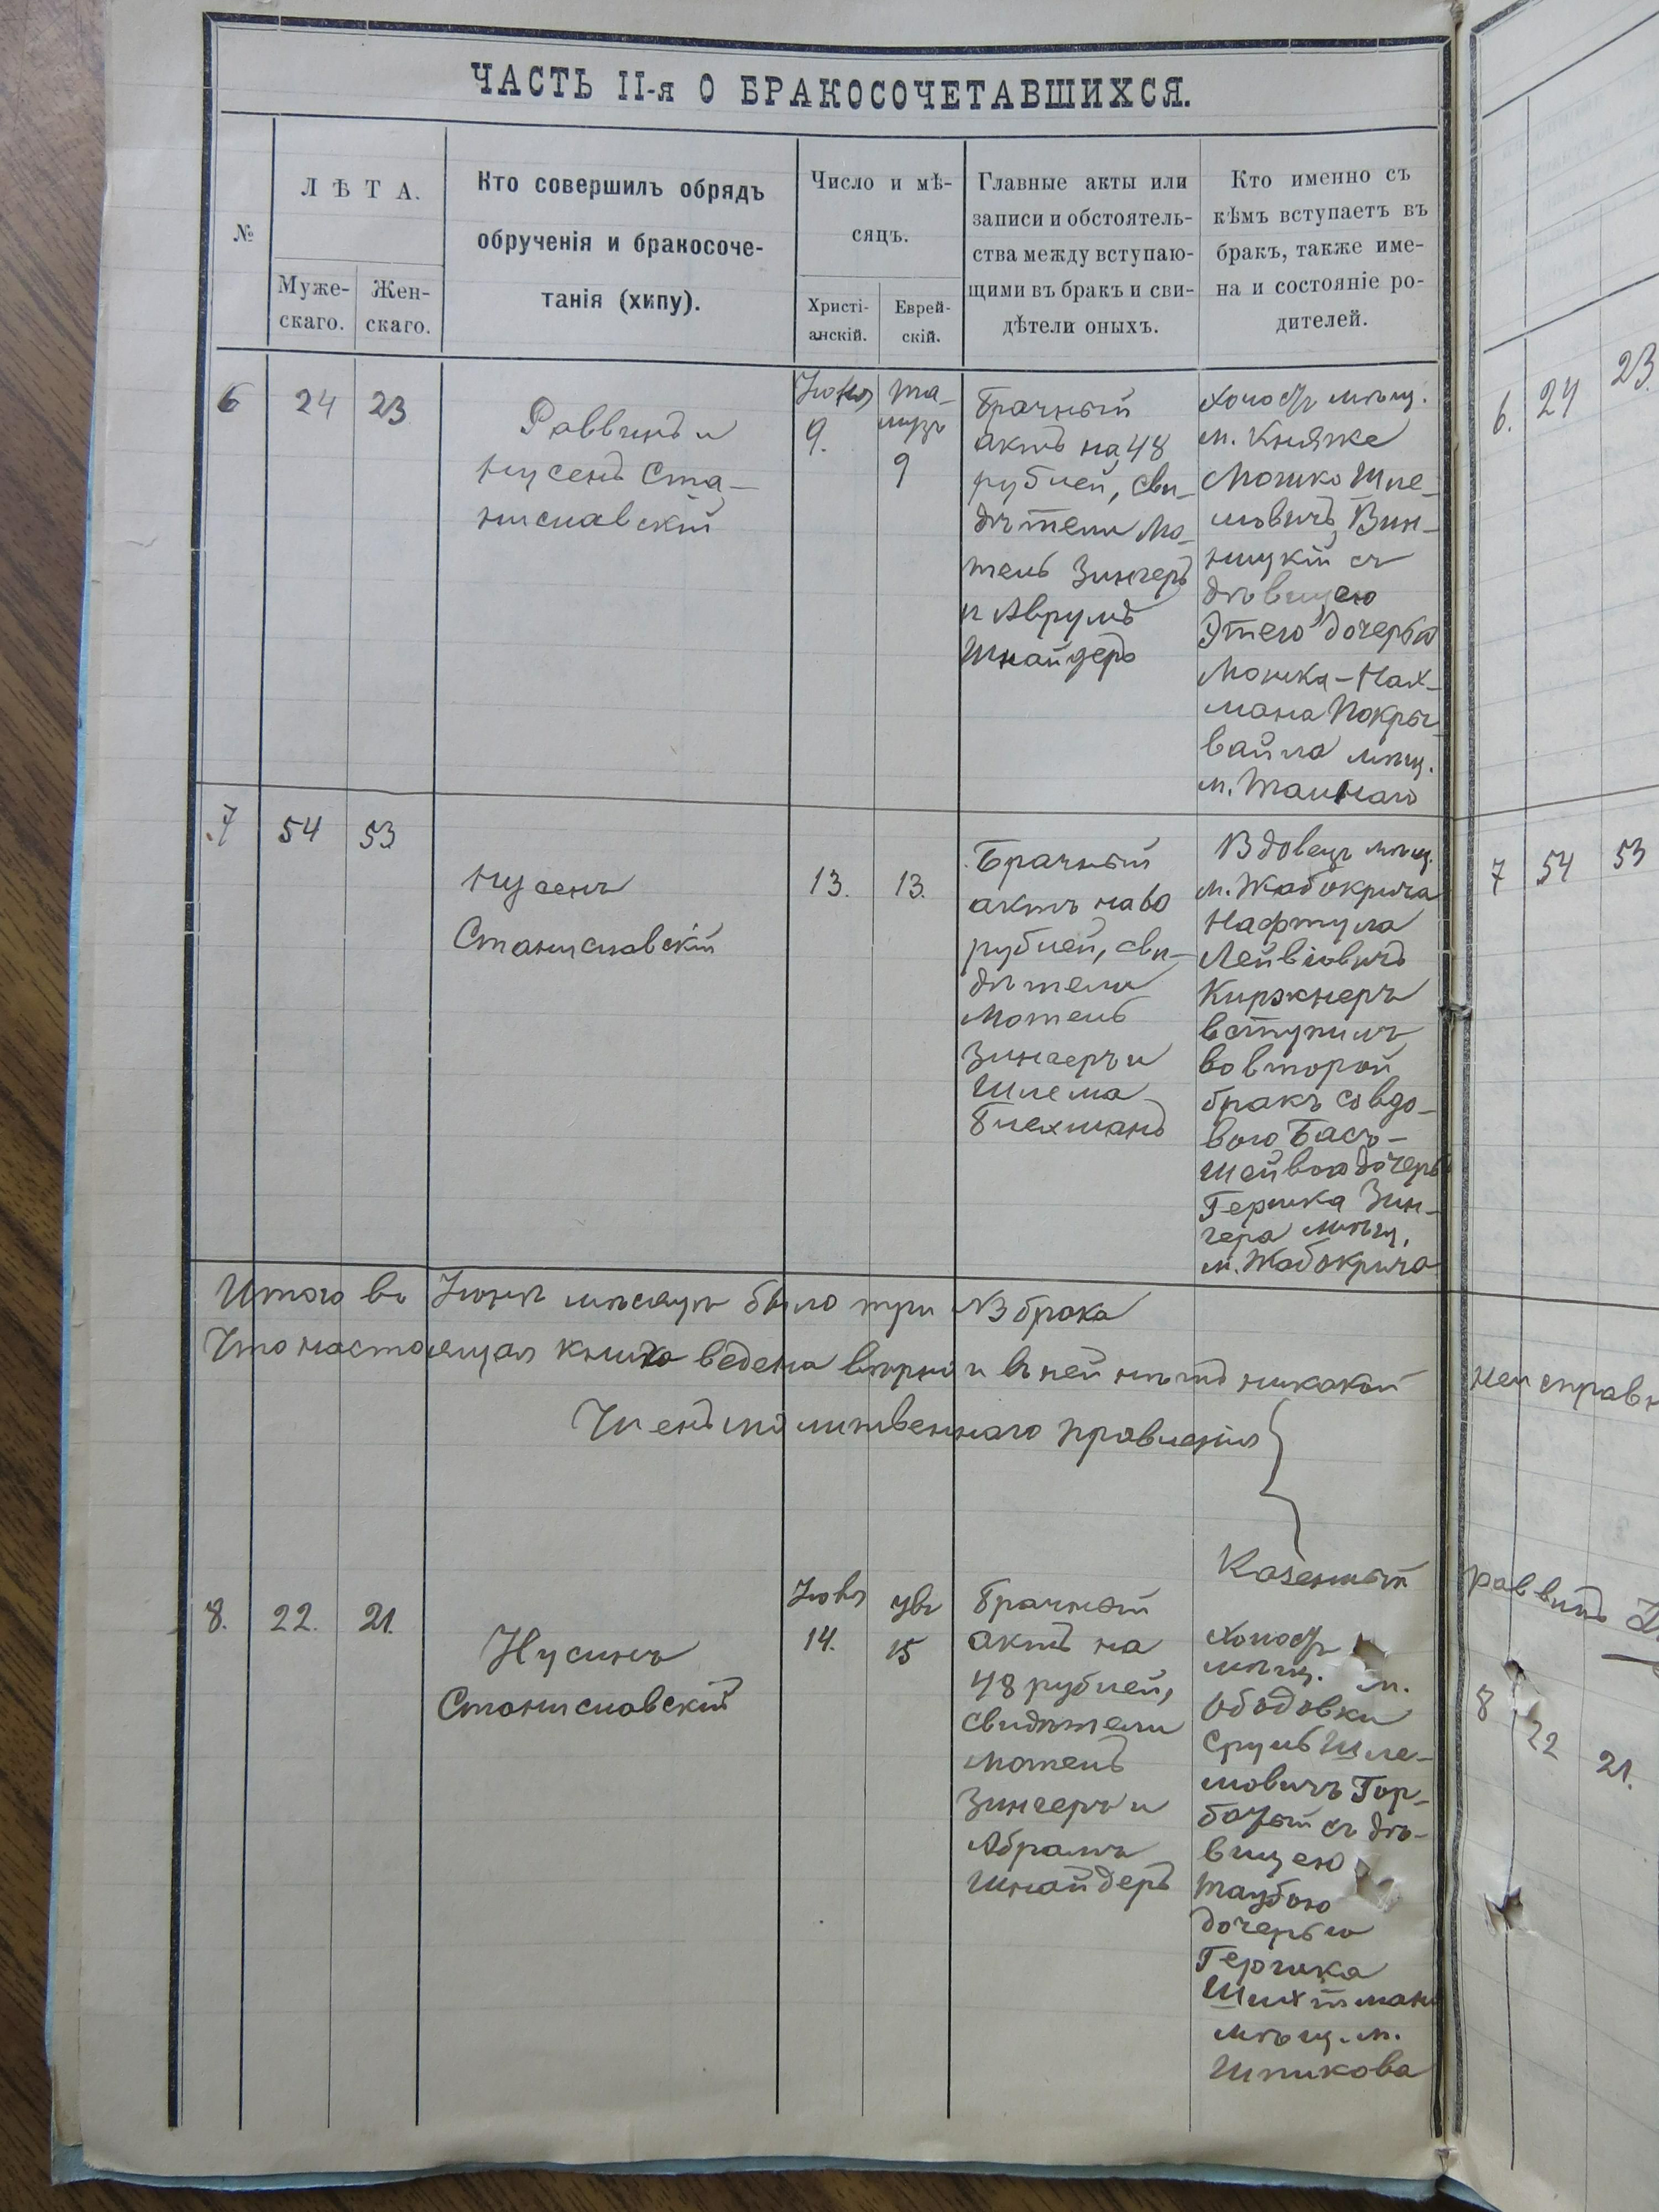 ЧАСТЬ II-я О БРАКОСОЧЕТАВШИХСЯ.
№
ЛѢТА.
Муже-
скаго.
Жен-
скаго.
Кто совершилъ обрядъ
обрученія и бракосоче-
танія (хипу).
Число и мѣ-
сяцъ.
Христі-
анскій.
Еврей-
скій.
Главные акты или
записи и обстоятель-
ства между вступаю-
щими въ бракъ и сви-
дѣтели оныхъ.
Кто именно съ
кѣмъ вступаетъ въ
бракъ, также име-
на и состояніе ро-
дителей.
6
24
23
Раввинъ и
Нусенъ Ста-
ниславскій
Іюня
9.
Та-
музъ
9
Брачный
актъ на 48
рублей, сви-
дѣтели Мо-
тель Зингеръ
и Аврумъ
Шнайдеръ
Холост мѣщ.
м. Княжe
Мошко Шле-
мовичъ Вин-
ницкій съ
дѣвицею
Этею дочерью
Мошка-Нах-
мана Покры-
вайла мѣщ.
м. Тальнаго
7
54
53
Нусенъ
Станиславскій
13.
13.
Брачный
актъ на 60
рублей, сви-
дѣтели
Мотель
Зингеръ и
Шлема
Блехманъ
Вдовецъ мѣщ.
м. Жабокрича
Нафтула
Лейвіовичъ
Киржнеръ
вступилъ
во второй
бракъ со вдо-
вою Бася-
Шейвою дочерь
Гершка Зин-
гера мѣщ.
м. Жабокрича
Итого въ Іюнѣ мѣсяцѣ было три №3 брака
Что настоящая книга ведена вѣрно и въ ней нѣтъ никакой
Членъ молитвеннаго правленія
Казенный
8.
22.
21.
Нусинъ
Станиславскій
Іюля
14.
Увъ
15
Брачный
актъ на
48 рублей,
свидѣтели
Мотель
Зингеръ и
Абрамъ
Шнайдеръ
Холост
мѣщ. м.
Ободовки
Сруль Шле-
мовичъ Гор-
батый съ дѣ-
вицею
Таубою
дочерью
Гершка
Шихтман
мѣщ. м.
Шпикова
6.
24
23.
7
54
53
неисправн
раввинъ
8
22
21.